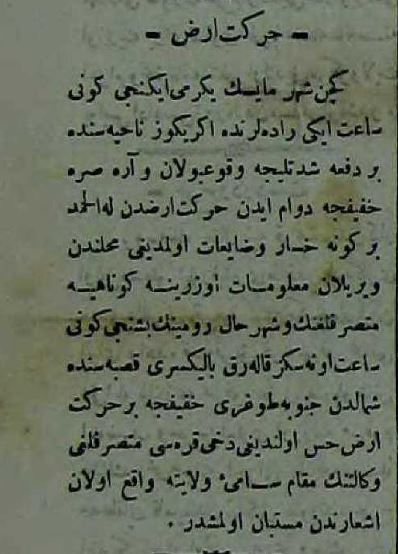 — حركت ارض —
كچن شهر مايسك يكرمى ايكنجى كونى
ساعت ايكى راده‌لرنده اكريكوز ناحيه‌سنده
بر دفعه شدتليجه وقوعبولان و آره صره
خفيفجه دوام ايدن حركت ارضدن له الحمد
بر كونه خسار وضايعات اولمديغى محلندن
ويريلان معلومات اوزرينه كوتاهيه
متصرفلغنك وشهر حال روميننك بشنجى كونى
ساعت اونه سكز قاله‌رق باليكسرى قصبه‌سنده
شمالدن جنوبه طوغرى خفيفجه بر حركت
ارض حس اولنديغى دخى قره‌سى متصرفلغى
وكالتنك مقام سامئ ولايته واقع اولان
اشعارندن مستبان اولمشدر .